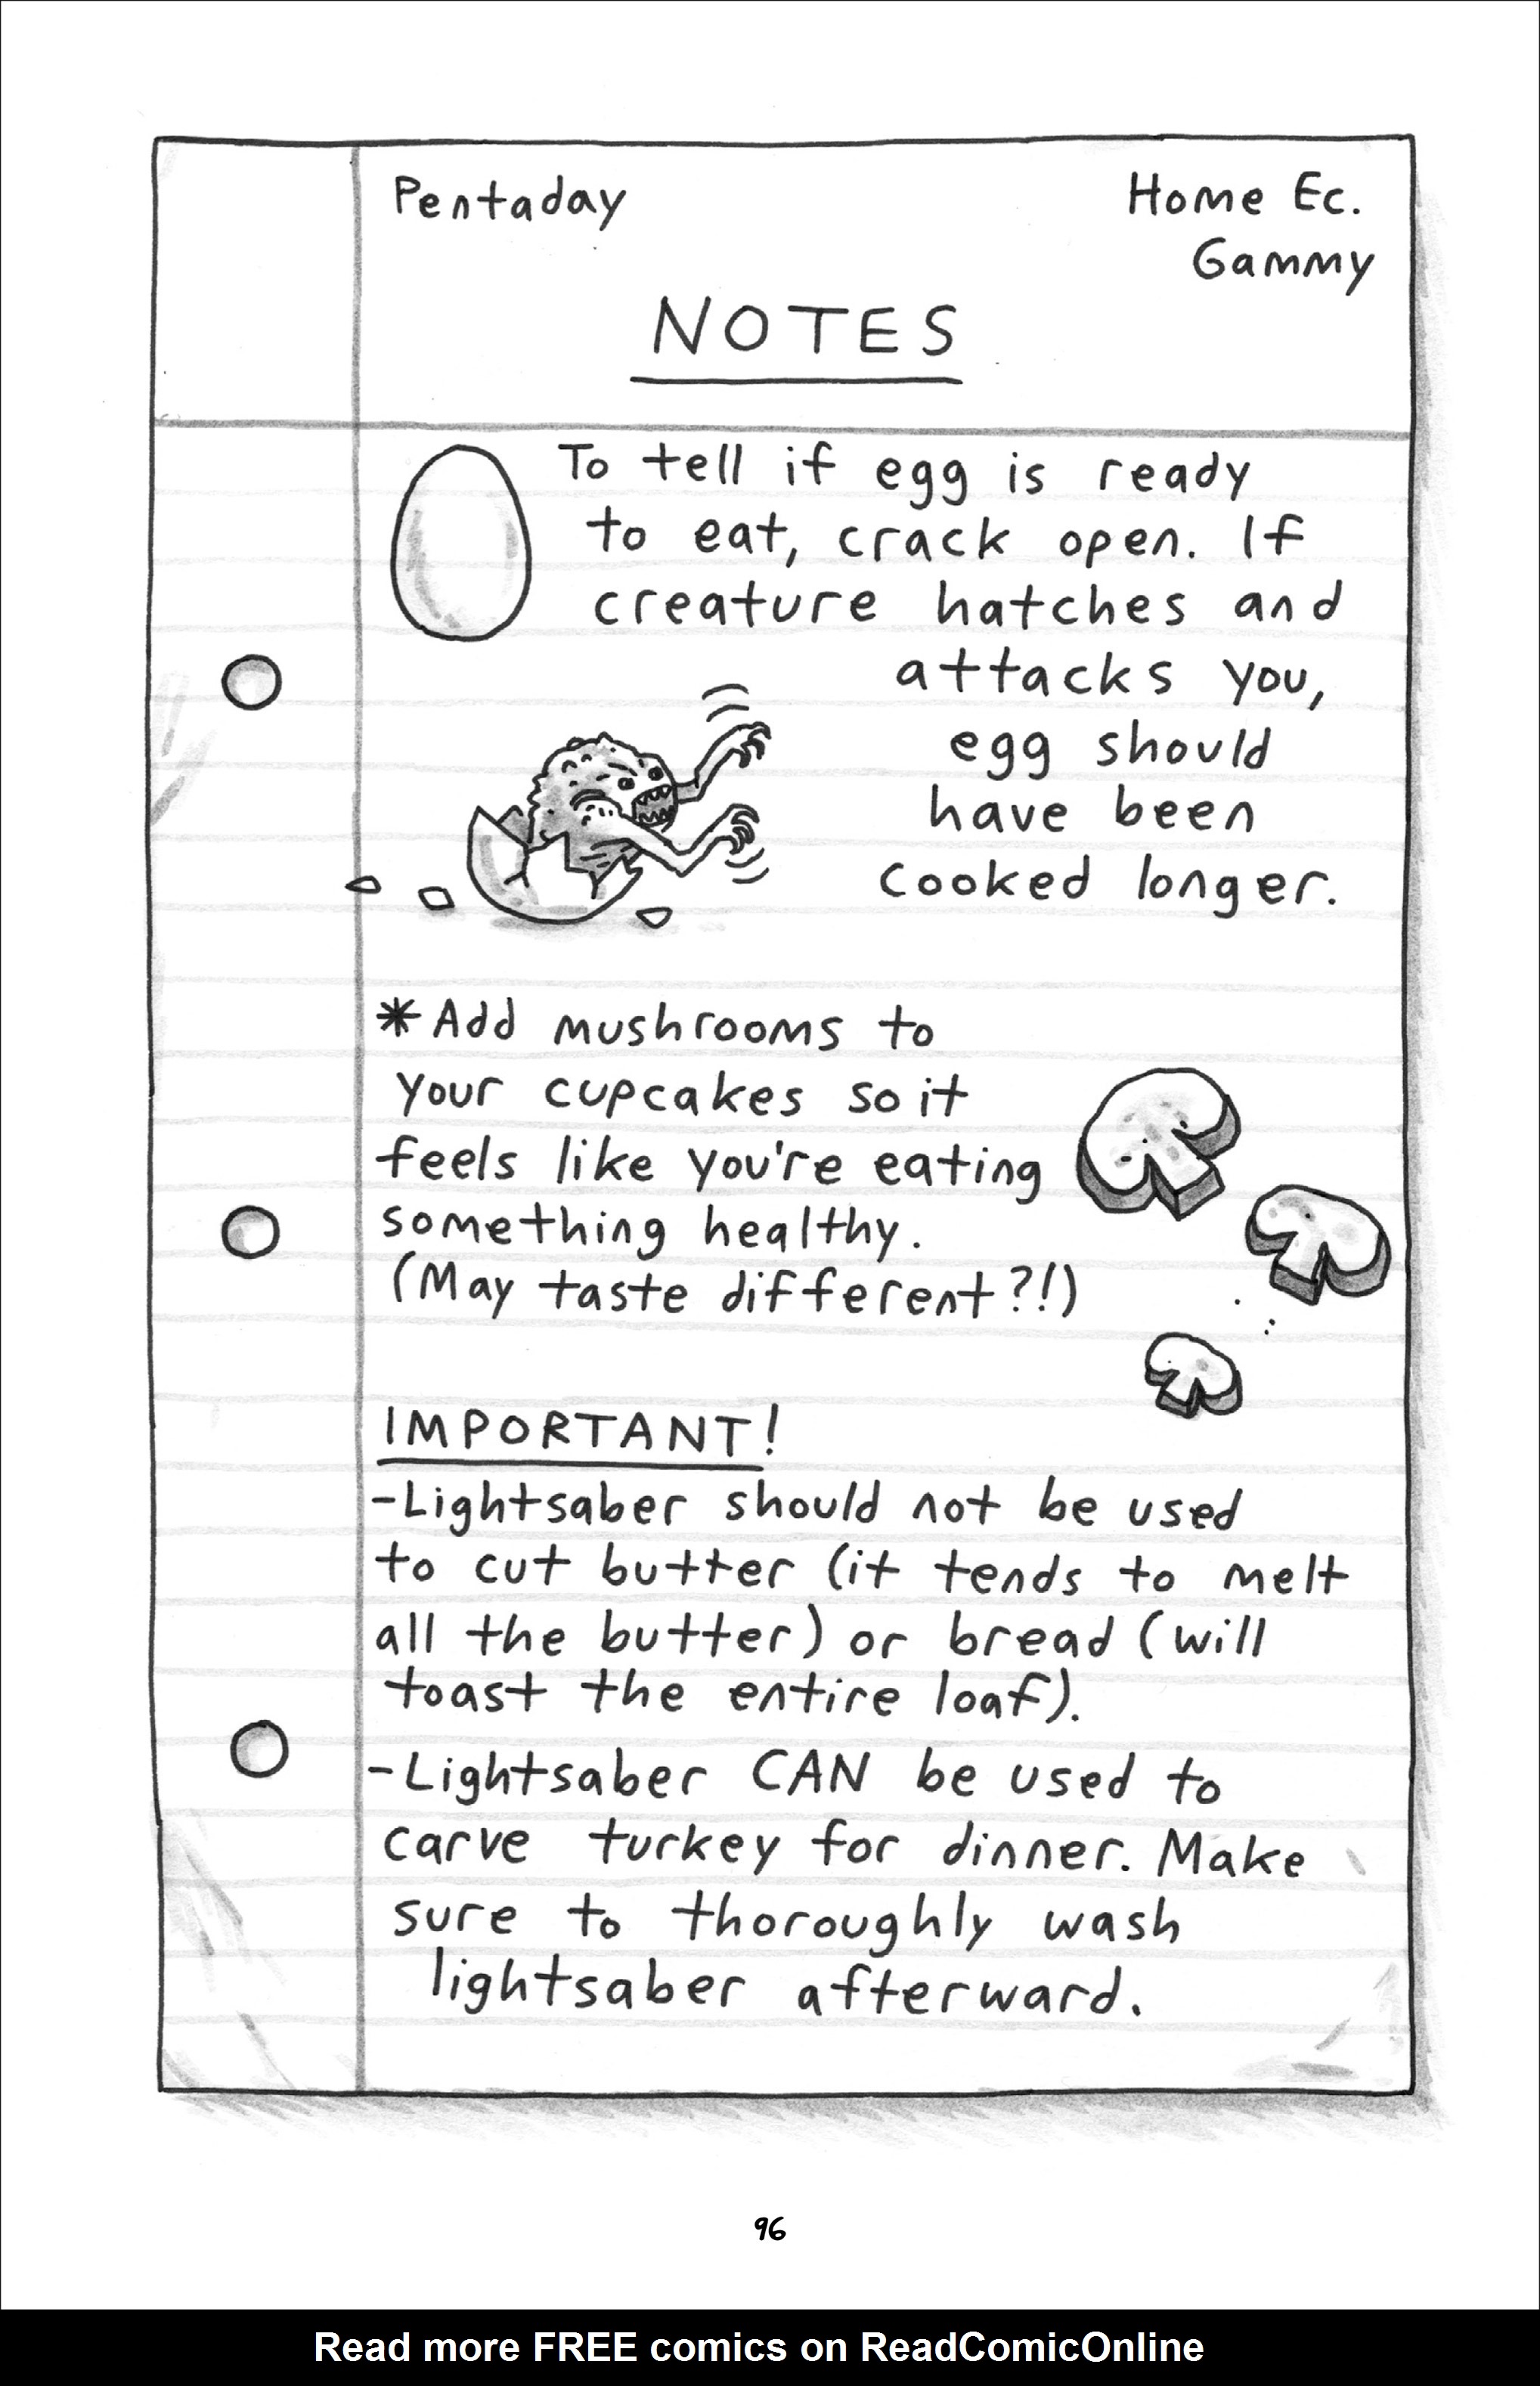 Pentaday
Home Ec.
Gammy
NOTES
To tell if egg is ready
to eat, crack open. If
creature hatches and
attacks you,
egg should
have been
cooked longer.
*Add mushrooms to
your cupcakes so it
feels like you're eating
something healthy.
(May taste different?!)
IMPORTANT!
-Lightsaber should not be used
to cut butter (it tends to melt
all the butter) or bread (will
toast the entire loaf).
-Lightsaber CAN be used to
carve turkey for dinner. Make
sure to thoroughly wash
lightsaber afterward.
96
Read more FREE comics on ReadComicOnline